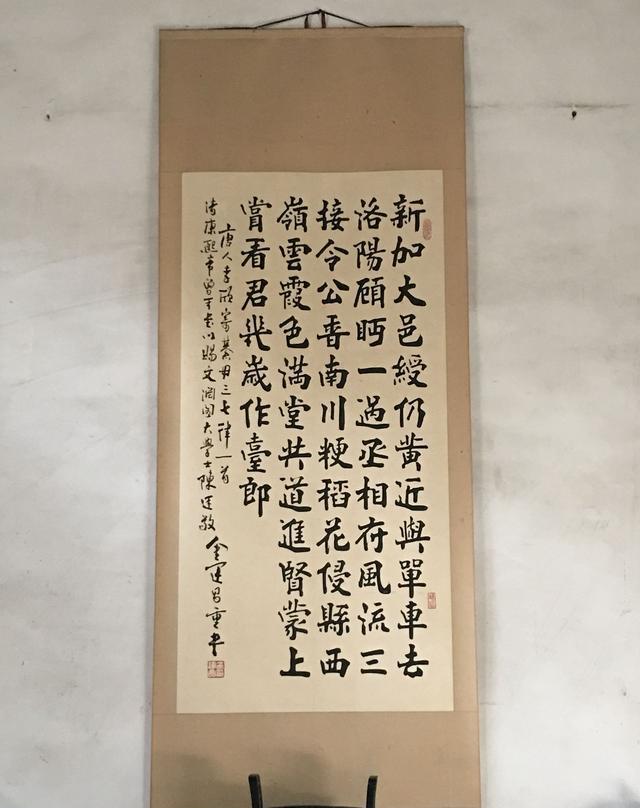 新加大邑綬仍黃近與單車去
洛陽顧眄一過丞相府風流三
接令公香南川粳稻花侵縣西
嶺雲霞色滿堂共道進賢蒙上
賞看君幾歲作臺郎
唐人李頎寄綦毋三七律一首
清康熙帝曾手書以賜文淵閣大學士陳廷敬 金運昌重書